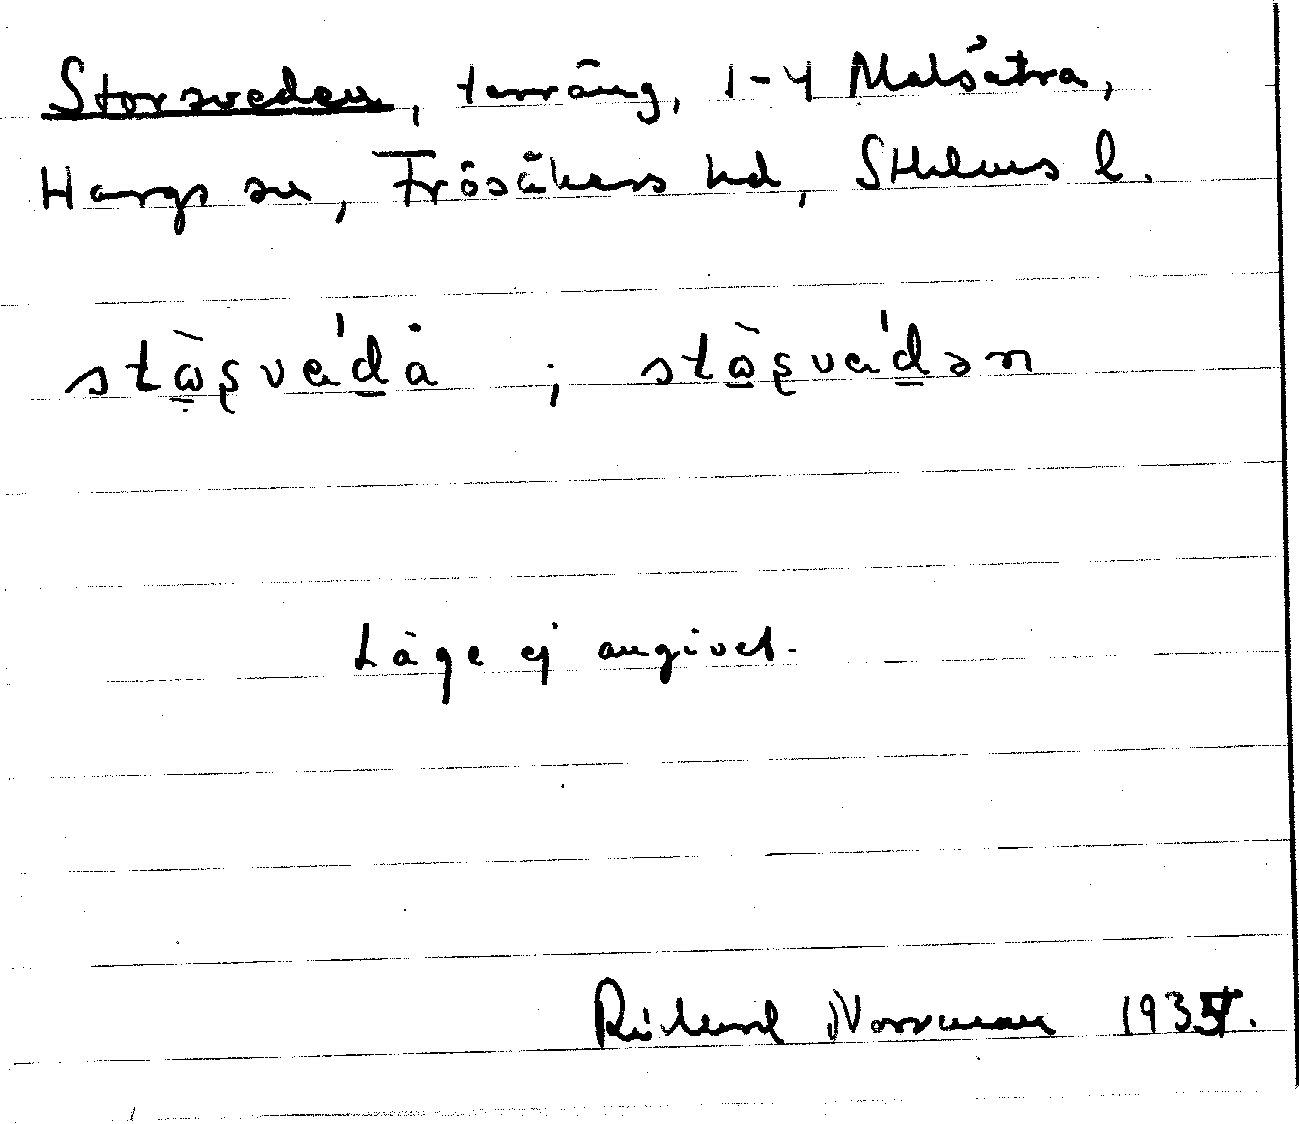 Storsveden, terräng, 1-4 Malsätra,
Hargs sn, Frösåkers hd, Sthlms l.
Läge ej angivet.
Rickard Norrman 193